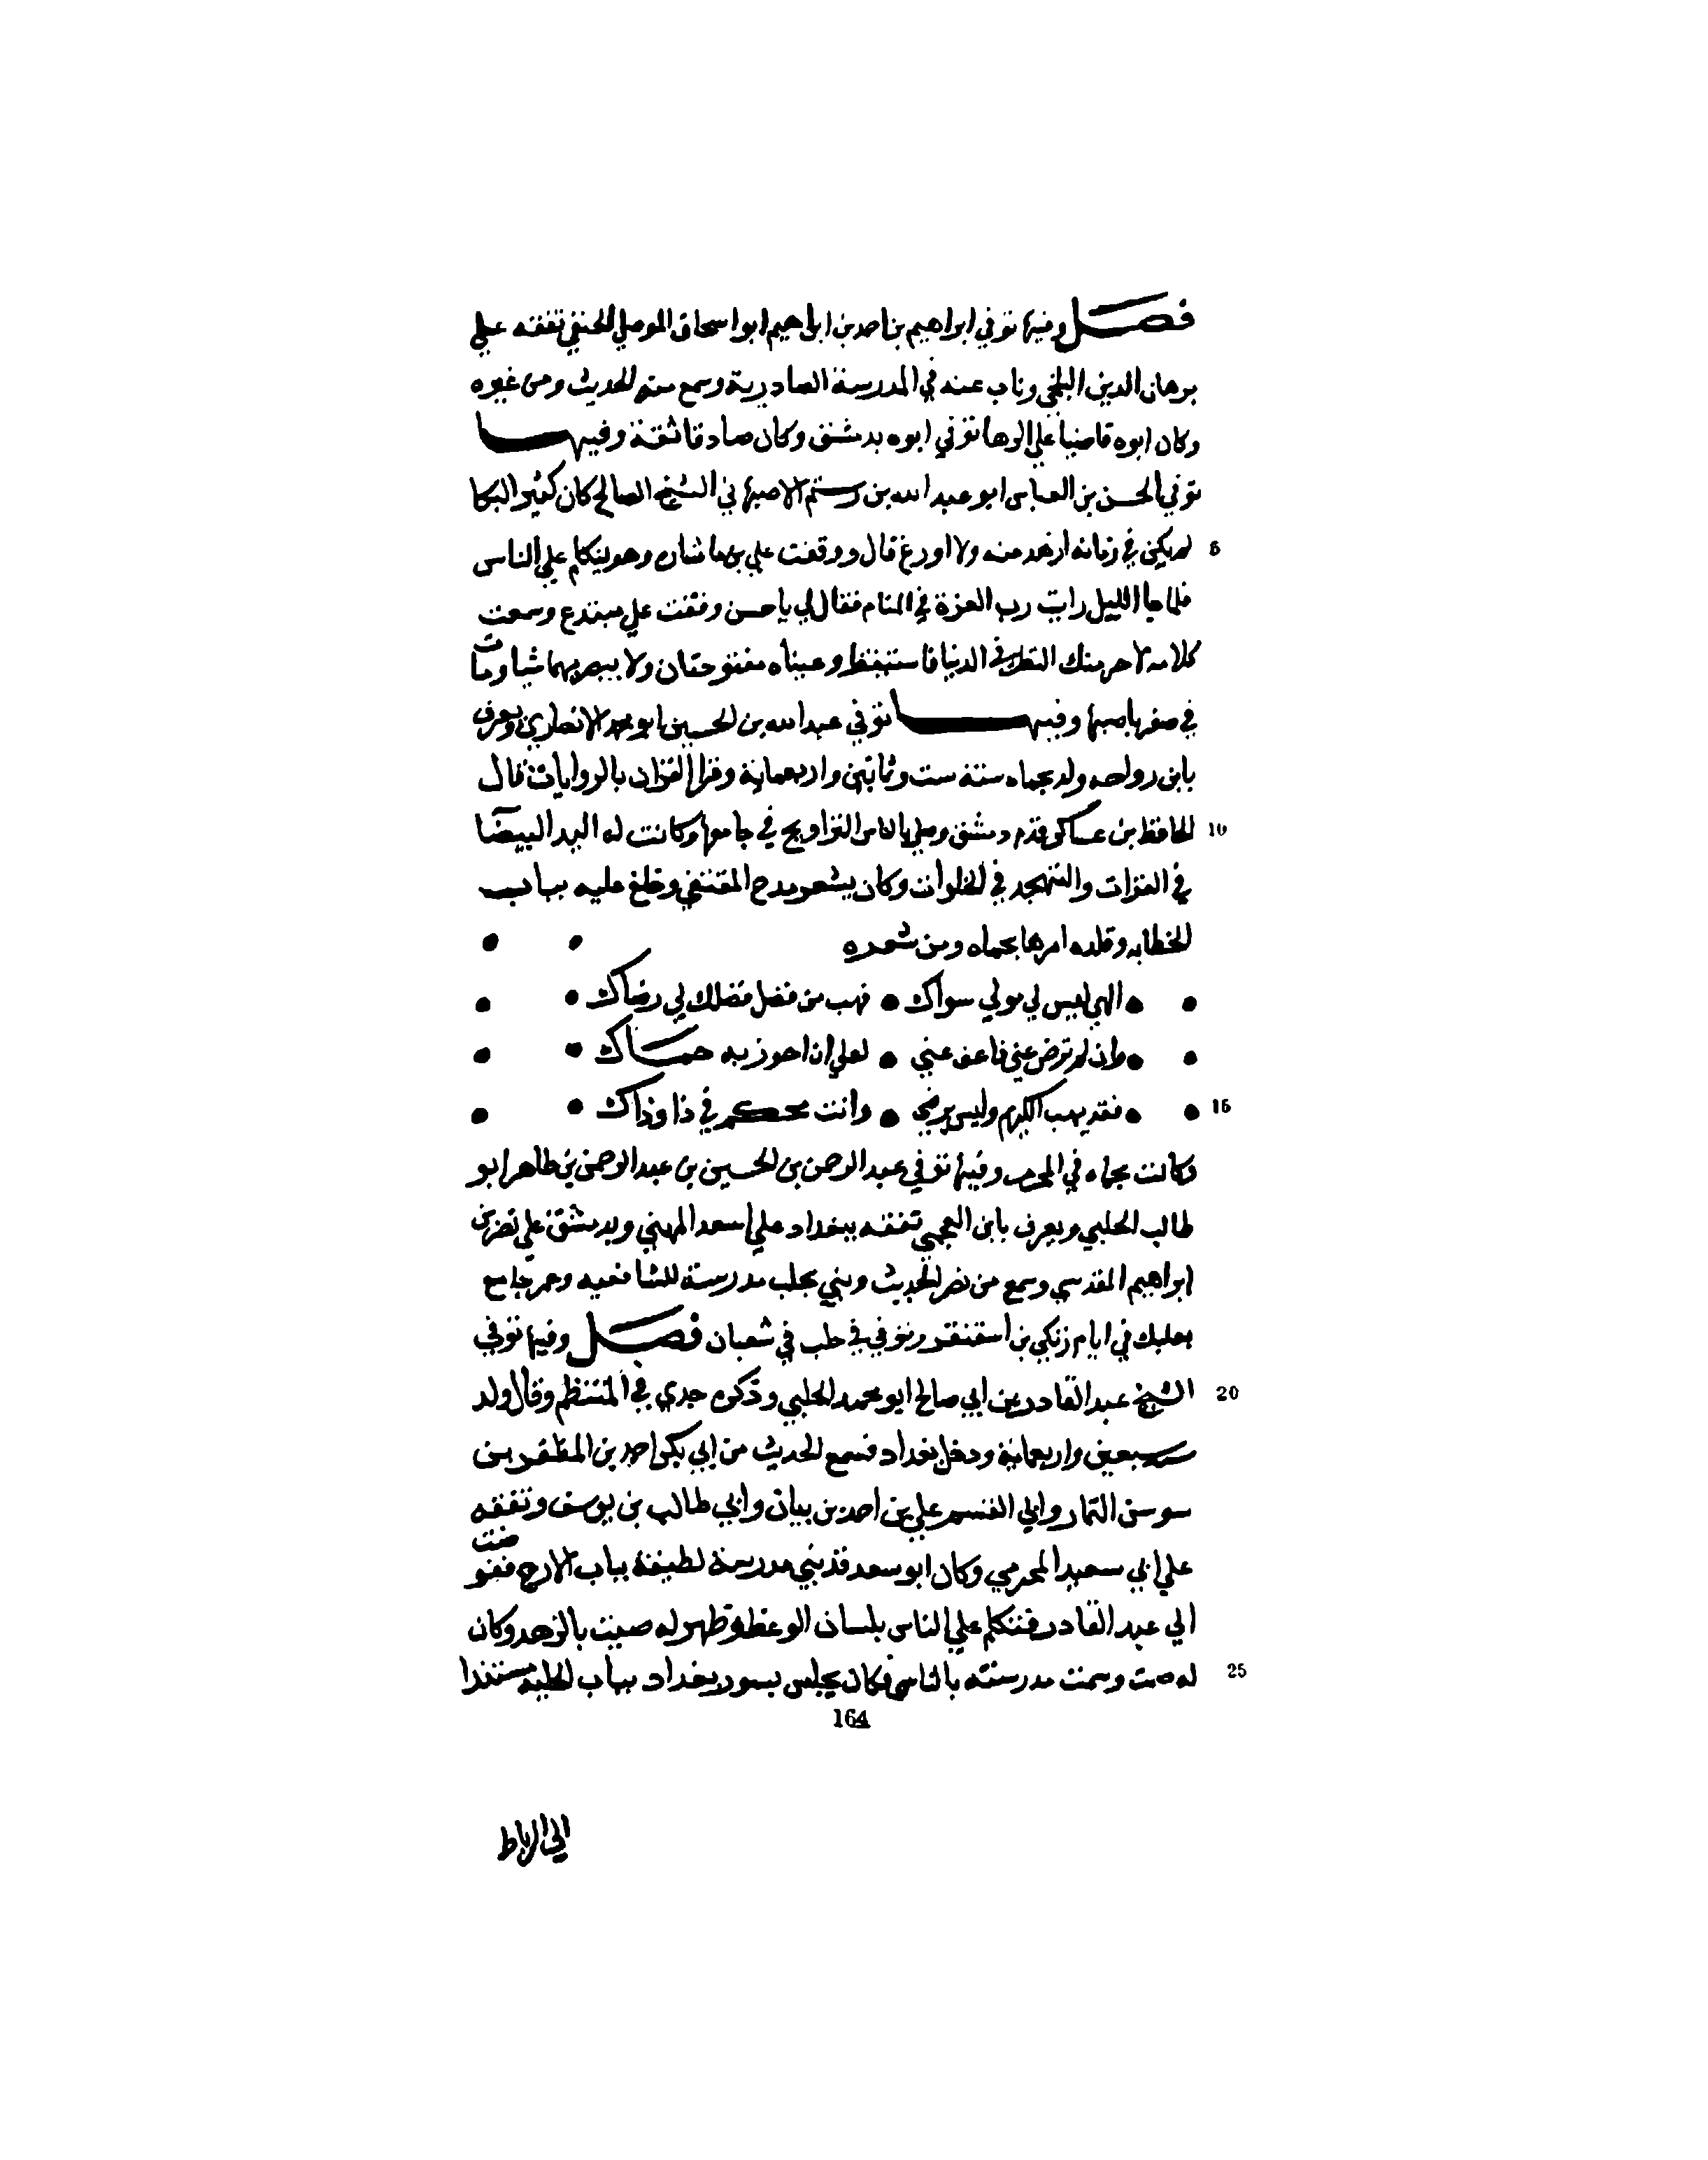 فصل وفيها توفي ابراهيم بن احمد بن ابراهيم ابو اسحاق الموصلي الحنفي تفقه علي
برهان الدين البلخي وناب عنه في المدرسة الصادرية وسمع منه الحديث ومن غيره
وكان ابوه قاضيا علي الرها توفي ابوه بدمشق وكان صادقا ثقة وفيها
توفي الحسن بن العباس ابو عبد الله بن رستم الاصبهاني الشيخ الصالح كان كثير البكا
5 لم يكن في زمانه ازهد منه ولا اورع قال ووقفت علي بن ماشاده وهو يتكلم علي الناس
فلما جا الليل رايت رب العزة في المنام فقال لي يا حسن وقفت علي مبتدع وسمعت
كلامه لاحرمنك النظر في الدنيا فاستيقظ وعيناه مفتوحتان ولا يبصر بهما شيا ومات
في صفر باصبها وفيها توفي عبد الله بن الحسين ابو محمد الانصاري ويعرف
بابن رواحه ولد بحماه سنة ست وثمانين واربعماية وقرا القران بالروايات قال
10 الحافظ بن عساكر قدم دمشق وصلي بالناس التراويح في جامعها وكانت له اليد البيضا
في القرات والتهجد في الخلوات وكان يشعر مدح المقتفي وخلع عليه بباب
الخطابه وقلده امرها بحماه ومن شعره
الهي ليس لي مولي سواك • فهب من فضل فضلك لي رضاك
وان لم ترض عني فاعف عني • لعلي ان احوز به حماك
15 فقد يهب الكريم وليس يرضي • وانت محكم في ذا وذاك
وكانت بحماه في المحرم وفيها توفي عبد الرحمن بن الحسين بن عبد الرحمن بن طاهر ابو
طالب الحلبي ويعرف بابن العجمي تفقه ببغداد علي اسعد المهيني وبدمشق علي نصر بن
ابراهيم المقدسي وسمع من نصر الحديث وبني بحلب مدرسة للشافعيه وعمر جامع
بعلبك في ايام زنكي بن اسقنقر وتوفي في حلب في شعبان فصل وفيها توفي
20 الشيخ عبد القادر بن ابي صالح ابو محمد الحلبي وذكره جدي في المنتظم وقال ولد
سبعين واربعماية ودخل بغداد فسمع الحديث من ابي بكر احمد بن المظفر بن
سوسن التمار وابي القسم علي بن احمد بن بيان وابي طالب بن يوسف وتفقه
علي ابي سعيد المخرمي وكان ابو سعد قد بني مدرسة لطيفة بباب الازج ففوضت
الي عبد القادر فتكلم علي الناس بلسان الوعظ وظهر له صيت بالزهد وكان
25 له صمت وسمت مدرسته بالناس فكان يجلس بسور بغداد بباب الحلبه مستندا
164
الي الرباط